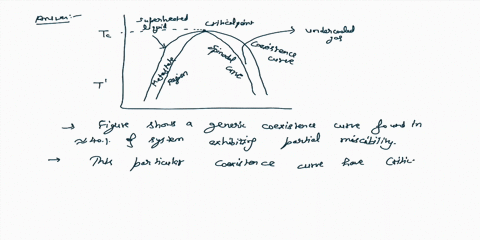 Answer:-
superheated
liquid
Critical point
undercooled
gas
Tc
Coexistence
curve
Spinodal
curve
Metastable
region
T'
→ Figure shows a generic coexistence curve found in
≈ 40% of system exhibiting partial miscibility.
→ This particular coexistence curve have Critic